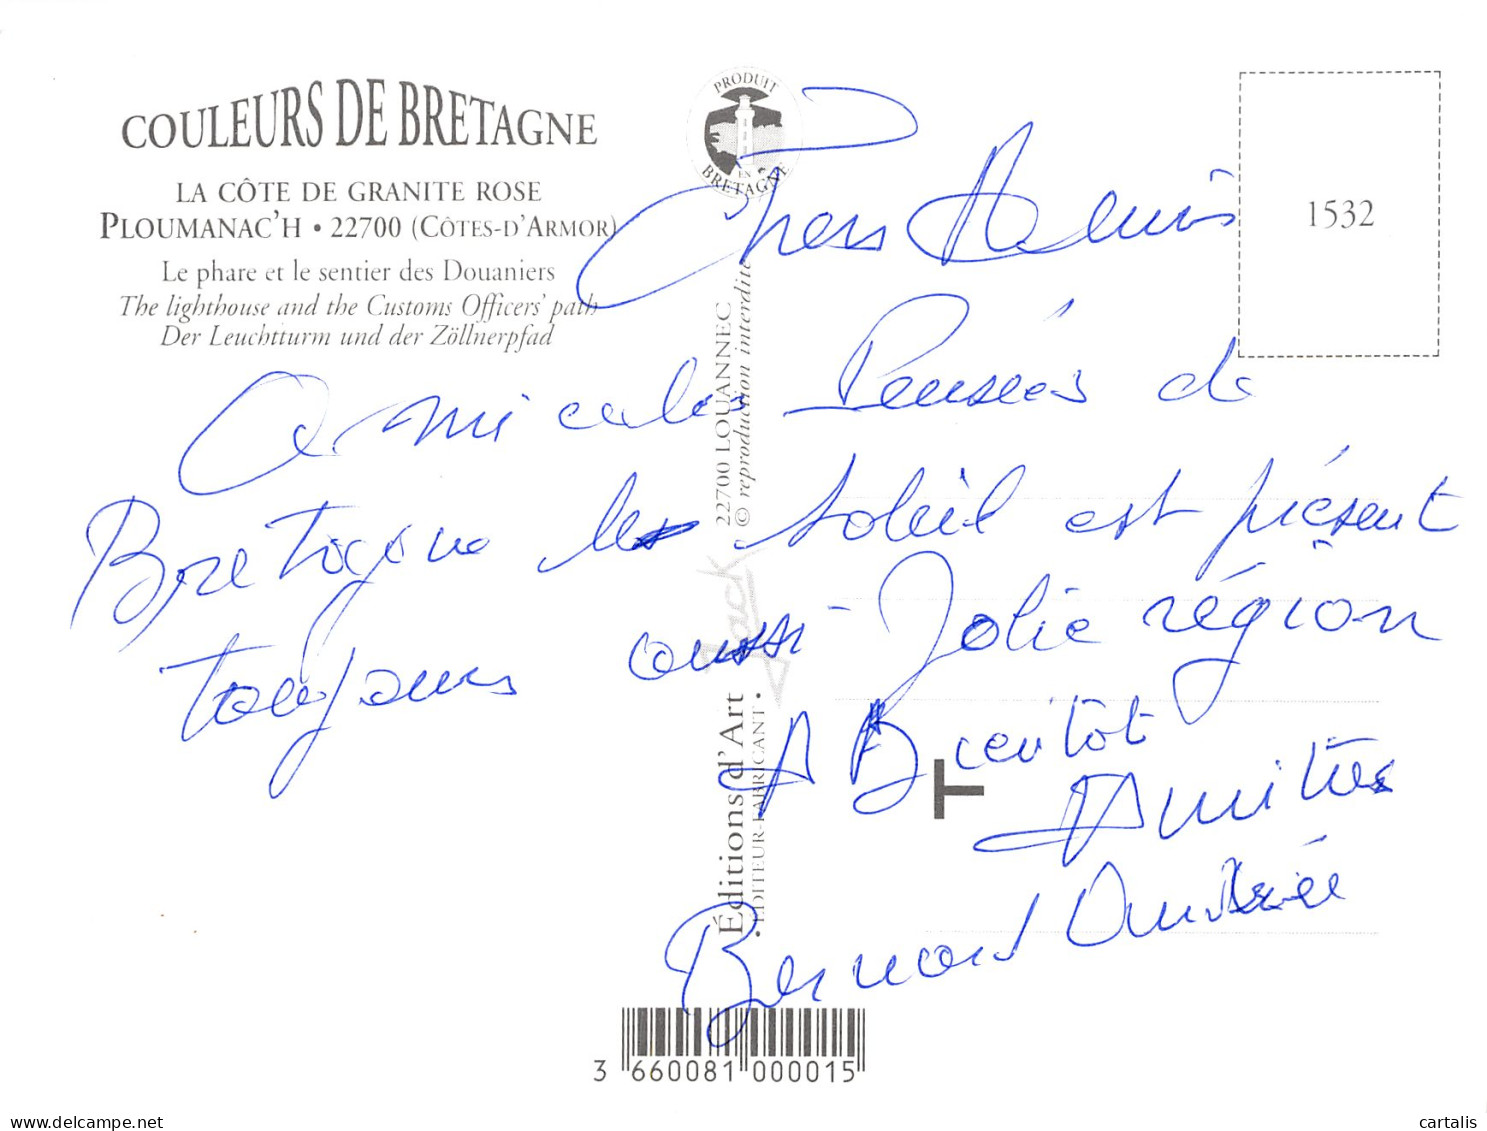 COULEURS DE BRETAGNE
LA CÔTE DE GRANITE ROSE
PLOUMANAC'H • 22700 (CÔTES-D'ARMOR)
Le phare et le sentier des Douaniers
The lighthouse and the Customs Officers' path
Der Leuchtturm und der Zöllnerpfad
PRODUIT
EN
BRETAGNE
1532
Chers Amis
Amicales Pensées de
Bretagne le soleil est présent
toujours aussi Jolie région
A Bientot
Amitiés
Bernard Andrée
22700 LOUANNEC
© reproduction interdite
Jack
Éditions d'Art
• ÉDITEUR-FABRICANT •
T
3 660081 000015
cartalis
delcampe.net